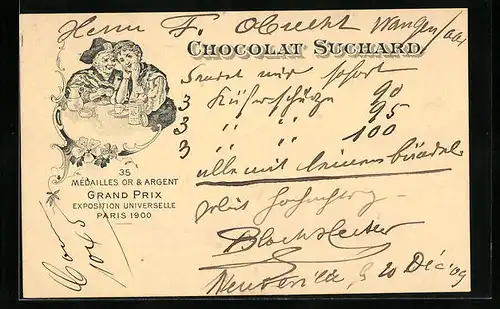 Herrn F. Obrecht Wangen / Aar
CHOCOLAT SUCHARD.
Sendet mir sofort
3 Küferschürze 90
3 " " 95
3 " " 100
alle mit
35
MÉDAILLES OR & ARGENT
GRAND PRIX
EXPOSITION UNIVERSELLE
PARIS 1900
Hochachtg
Neuveville, 20 Déc 09
1045